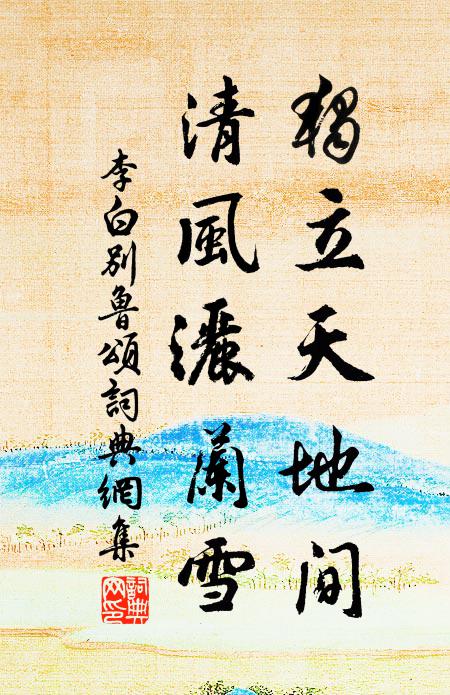 獨立天地间
清風灑蘭雪
李白別魯頌詞典網集
詞典